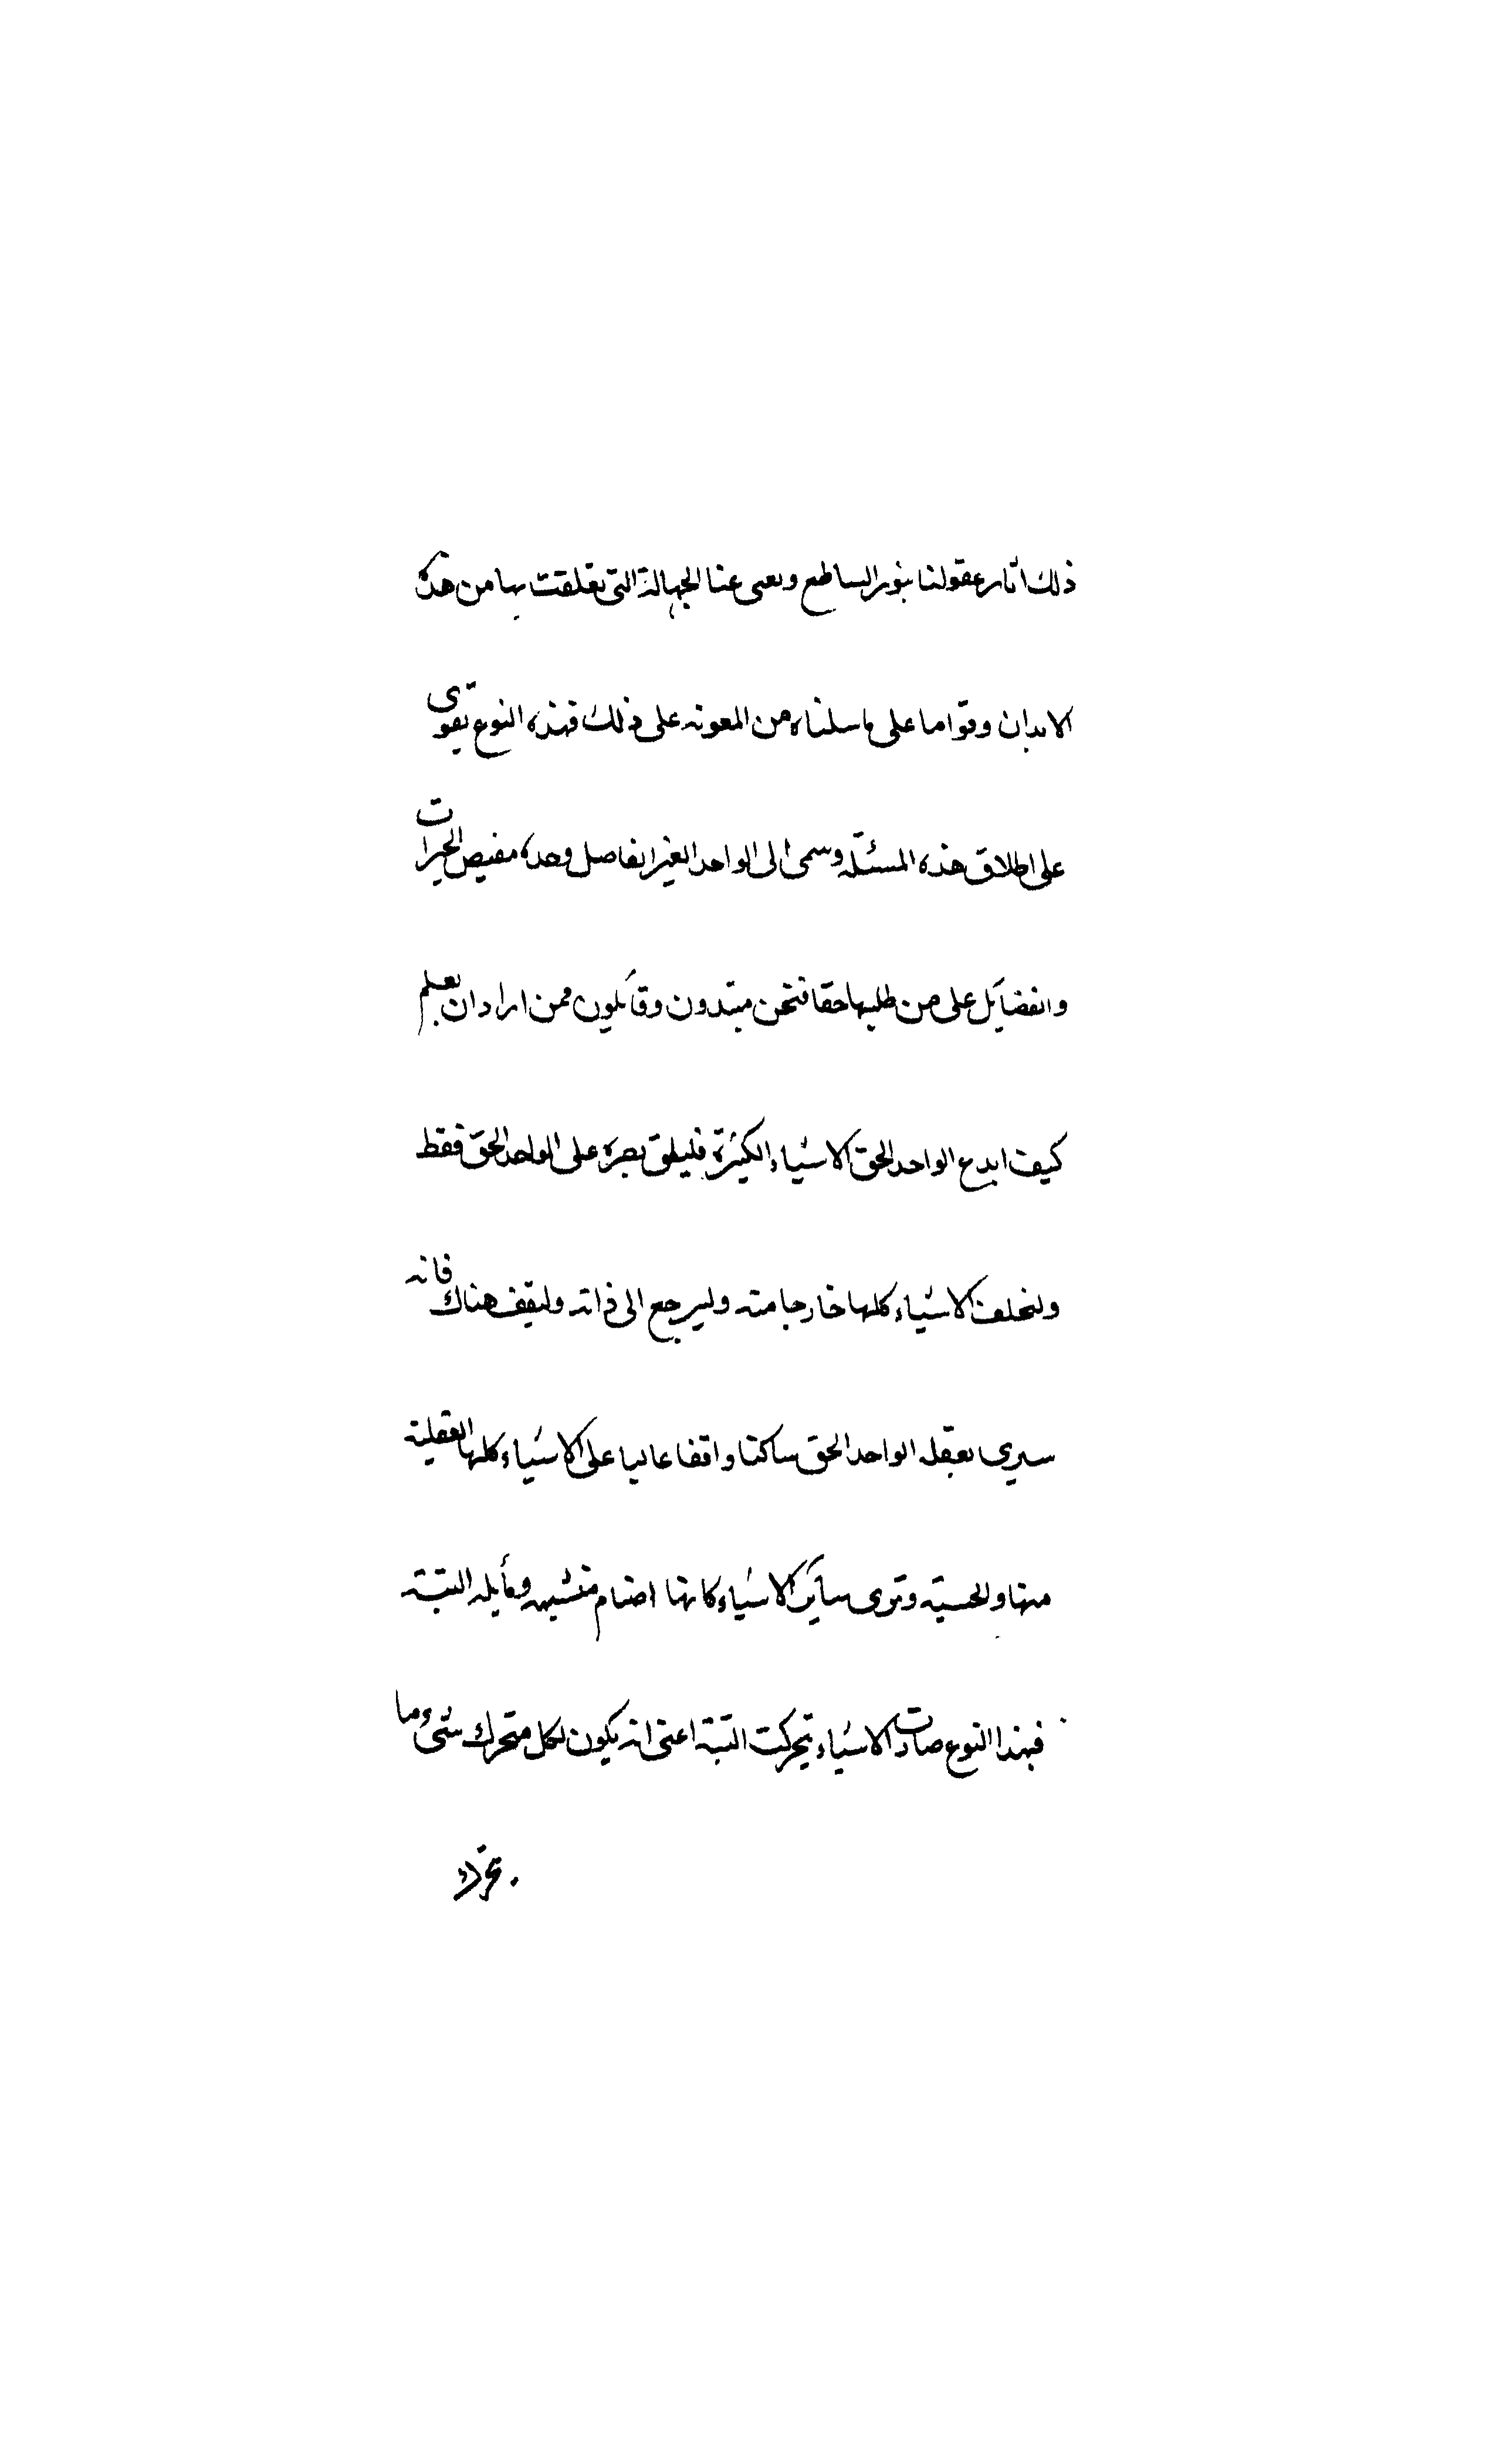 ذلك انار عقولنا بنوره الساطع ونفى عنا الجهالة التى تعلقت بها من هذه
الابدان وقوانا على ما سلناه من المعونه على ذلك فهذه النوع نقوى
على اطلاق هذه المسئلة وسمى الى الواحد الغير الفاصل وحده مفيض الخيرات
والفضايل على من طلبها حقا فنحن مبتدون وقائلون فمن اراد ان يعلم
كيف ابدع الواحد الحق الاشياء الكثيرة فليلق بصره على الواحد الحق فقط
وليخلف الاشياء كلها خارجا منه وليرجع الى ذاته وليقف هناك فانه
سيرى بعقله الواحد الحق ساكنا واقفا عاليا على الاشياء كلها العقلية
منها والحسية وترى سائر الاشياء كانها اصنام منشبهه ومايله اليته
فبهذا النوع صارت الاشياء تحركت اليته اعنى انه يكون لكل متحرك شىء ما
تحرك